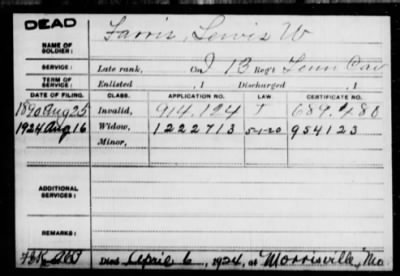 DEAD
NAME OF SOLDIER: Farris, Lewis W
SERVICE: Late rank, Co. I 13 Reg't Tenn Cav
TERM OF SERVICE: Enlisted , 1 Discharged , 1
DATE OF FILING. CLASS. APPLICATION NO. LAW CERTIFICATE NO.
1890 Aug 25 Invalid, 914.124 J 689.480
1924 Aug 16 Widow, 1222713 54-20 954123
Minor,
ADDITIONAL SERVICES:
REMARKS:
Died April 6, 1924, at Morrisville, Mo.